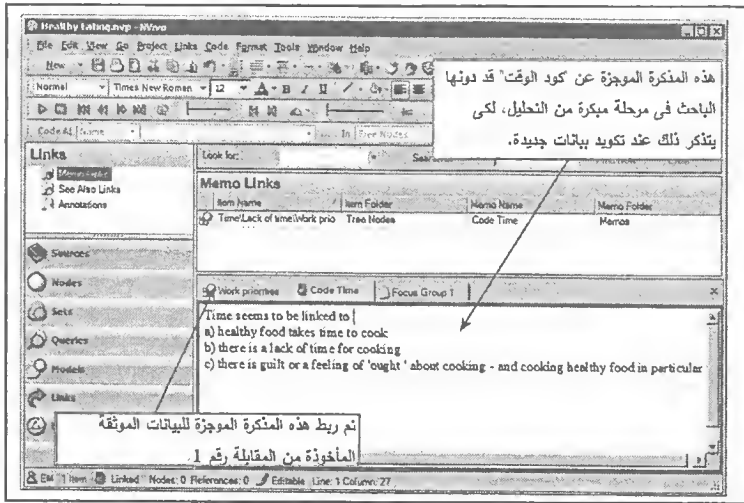 Healthy Eating.nvp - NVivo
File Edit View Go Project Links Code Format Tools Window Help
New
Normal Times New Roman 12 A B I U
Code At Name In Free Nodes
هذه المذكرة الموجزة عن "كود الوقت" قد دونها
الباحث فى مرحلة مبكرة من التحليل، لكى
يتذكر ذلك عند تكويد بيانات جديدة.
Links
Memo Links
See Also Links
Annotations
Look for:
Memo Links
Item Name Item Folder Memo Name Memo Folder
Time\Lack of time\Work prio Tree Nodes Code Time Memos
Sources
Nodes
Sets
Queries
Models
Links
Work priorities Code Time Focus Group 1
Time seems to be linked to
a) healthy food takes time to cook
b) there is a lack of time for cooking
c) there is guilt or a feeling of 'ought ' about cooking - and cooking healthy food in particular
تم ربط هذه المذكرة الموجزة للبيانات الموثقة
المأخوذة من المقابلة رقم 1.
EM 1 Item Linked Nodes: 0 References: 0 Editable Line: 1 Column: 27